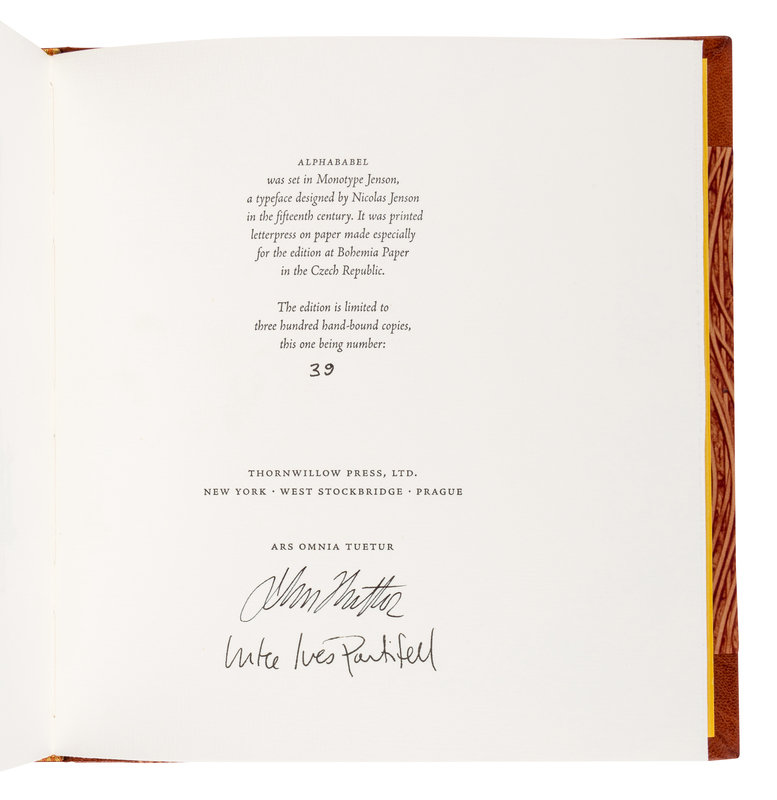 ALPHABABEL
was set in Monotype Jenson,
a typeface designed by Nicolas Jenson
in the fifteenth century. It was printed
letterpress on paper made especially
for the edition at Bohemia Paper
in the Czech Republic.
The edition is limited to
three hundred hand-bound copies,
this one being number:
39
THORNWILLOW PRESS, LTD.
NEW YORK · WEST STOCKBRIDGE · PRAGUE
ARS OMNIA TUETUR
Ives